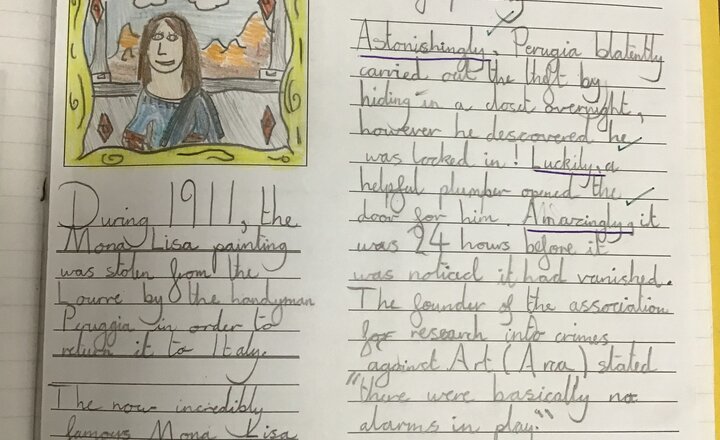 During 1911, the
Mona Lisa painting
was stolen from the
Lourre by the handyman
Peruggia in order to
return it to Italy.
The now incredibly
famous Mona Lisa
Astonishingly, Perugia blatently
carried out the theft by
hiding in a closet overnight,
however he descovered he
was locked in! Luckily, a
helpful plumber opened the
door for him. Amazingly, it
was 24 hours before it
was noticed it had vanished.
The founder of the association
for research into crimes
against Art (Arca) stated
"there were basically no
alarms in play."